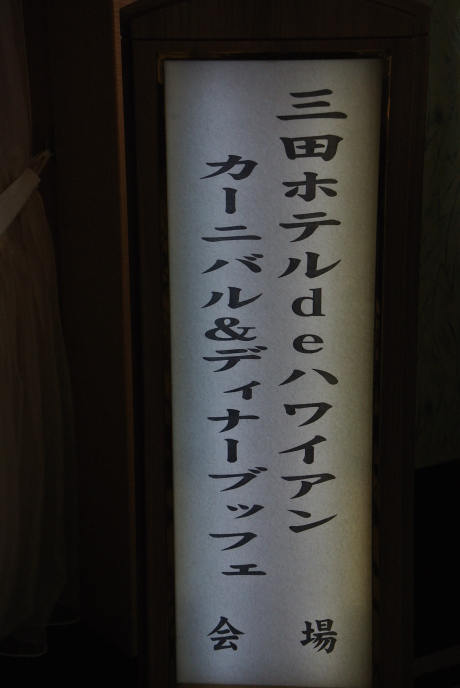 三田ホテルdeハワイアン
カーニバル&ディナーブッフェ
会場